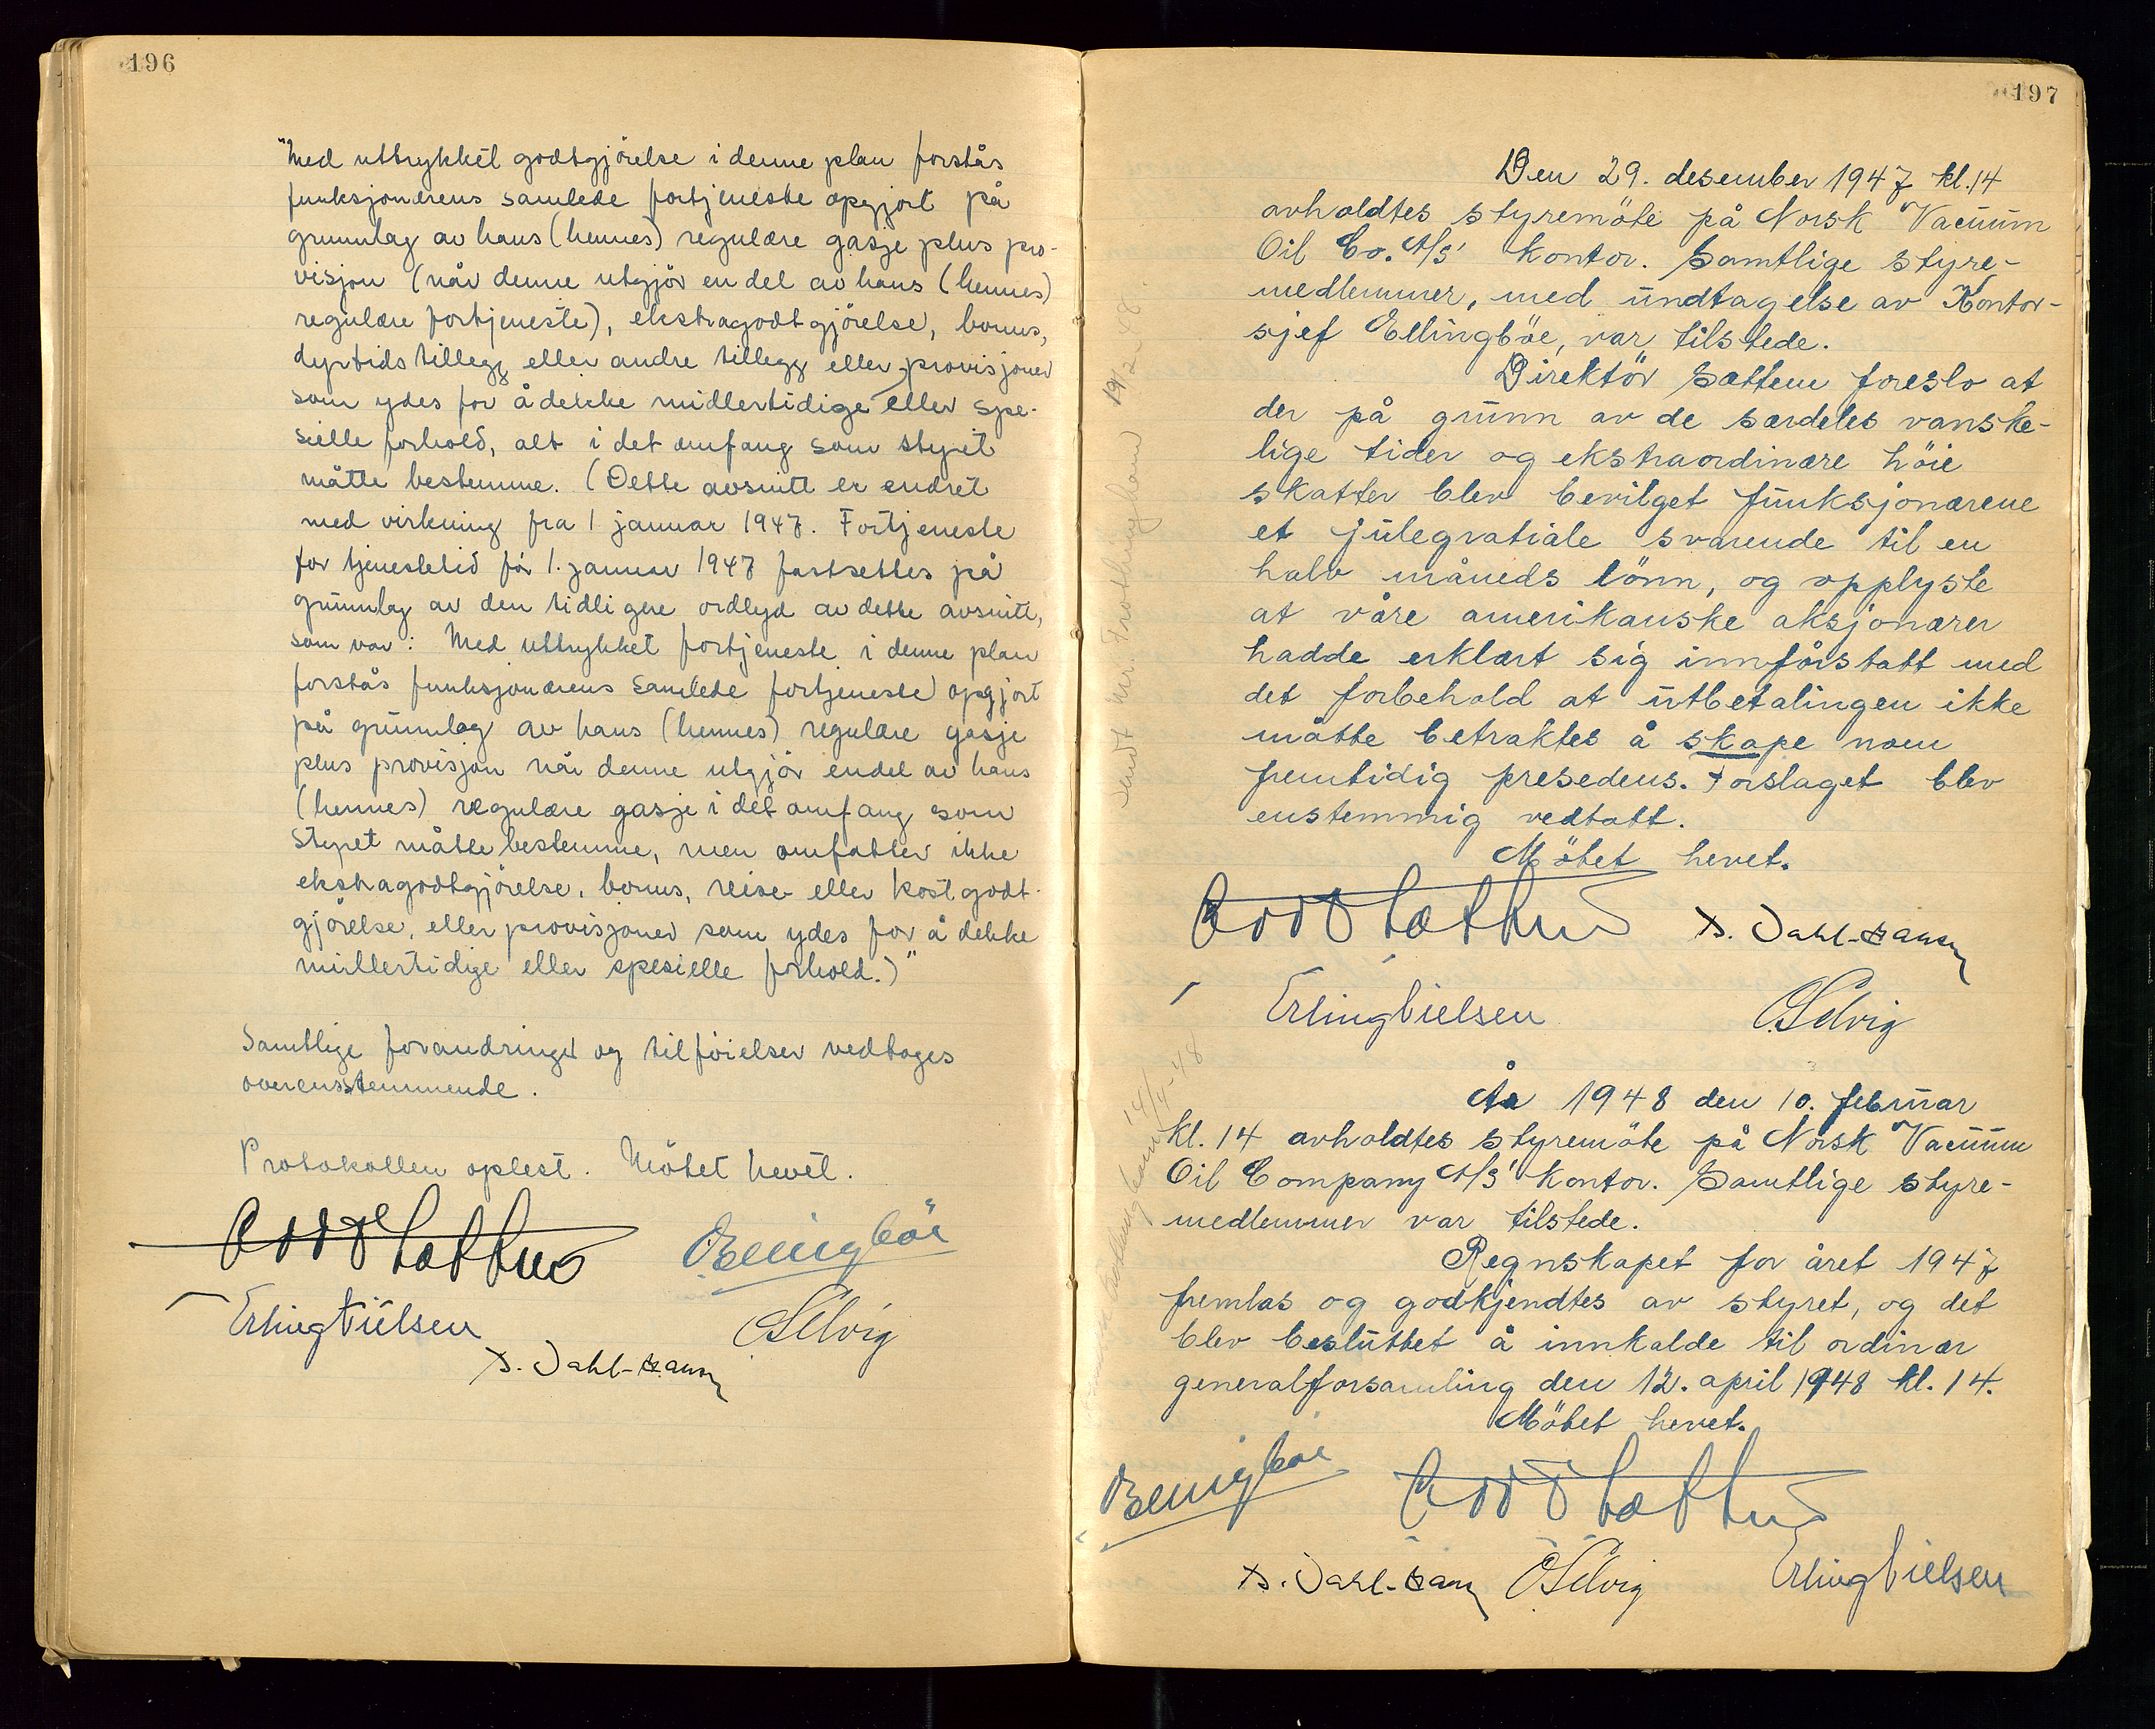 196
"Med uttrykket godtgjörelse i denne plan forstås
funksjonærens samlede fortjeneste opgjort på
grunnlag av hans (hennes) regulære gasje plus pro-
visjon (når denne utgjör en del av hans (hennes)
regulære fortjeneste), ekstragodtgjörelse, bonus,
dyrtidstillegg eller andre tillegg eller provisjoner
som ydes for å dekke midlertidige eller spe-
sielle forhold, alt i det omfang som styret
måtte bestemme. (Dette avsnitt er endret
med virkning fra 1 januar 1947. Fortjeneste
for tjenestetid för 1. januar 1947 fastsettes på
grunnlag av den tidligere ordlyd av dette avsnitt,
som var: Med uttrykket fortjeneste i denne plan
forstås funksjonærens samlede fortjeneste opgjort
på grunnlag av hans (hennes) regulære gasje
plus provisjon når denne utgjör endel av hans
(hennes) regulære gasje i det omfang som
styret måtte bestemme, men omfatter ikke
ekstragodtgjörelse, bonus, reise eller kostgodt-
gjörelse, eller provisjoner som ydes for å dekke
midlertidige eller spesielle forhold.)"
Samtlige forandringer og tilföielser vedtages
overensstemmende.
Protokollen oplest. Mötet hevet.
Odd Sættem Ellingböe
Erling Nielsen OSelvig
D. Dahl-Hansen
197
Den 29. desember 1947 kl. 14
avholdtes styremöte på Norsk Vacuum
Oil Co. A/S' kontor. Samtlige styre-
medlemmer, med undtagelse av Kontor-
sjef Ellingböe, var tilstede.
Direktör Sættem foreslo at
der på grunn av de særdeles vanske-
lige tider og ekstraordinære höie
skatter blev bevilget funksjonærene
et julegratiale svarende til en
halv måneds lönn, og opplyste
at våre amerikanske aksjonærer
hadde erklært sig innforstått med
det forbehold at utbetalingen ikke
måtte betraktes å skape noen
fremtidig presedens. Forslaget blev
enstemmig vedtatt.
Mötet hevet.
Odd Sættem D. Dahl-Hansen
Erling Nielsen OSelvig
Sendt Mr. Frothingham 19/2-48.
År 1948 den 10. februar
kl. 14 avholdtes styremöte på Norsk Vacuum
Oil Company A/S' kontor. Samtlige styre-
medlemmer var tilstede.
Regnskapet for året 1947
fremlas og godkjendtes av styret, og det
blev besluttet å innkalde til ordinær
generalforsamling den 12. april 1948 kl. 14.
Mötet hevet.
Ellingböe Odd Sættem
D. Dahl-Hansen OSelvig Erling Nielsen
14/4-48